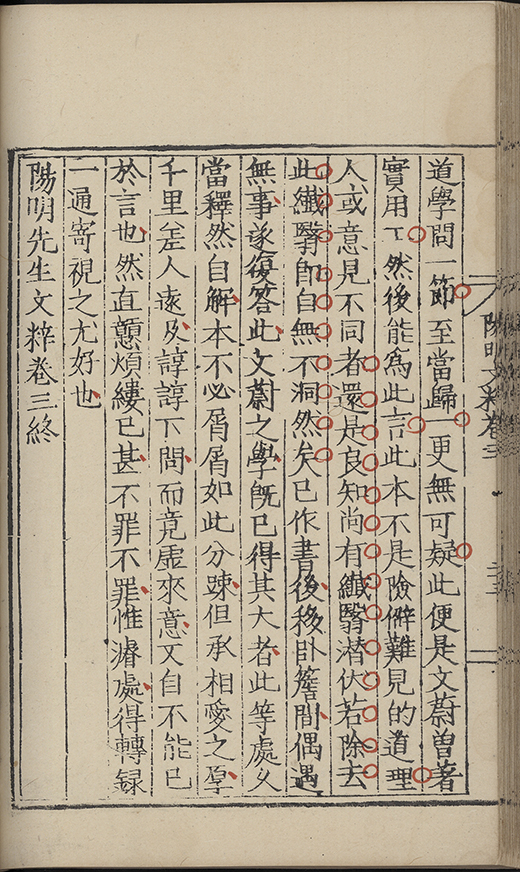 道學問一節至當歸一更無可疑此便是文蔚曾著
實用工然後能為此言此本不是險僻難見的道理
人或意見不同者還是良知尚有纖翳潛伏若除去
此纖翳即自無不洞然矣已作書後移卧簷間偶遇
無事遂復答此文蔚之學既已得其大者此等處乆
當釋然自解本不必屑屑如此分疎但承相愛之厚
千里差人遠及諄諄下問而竟虛來意又自不能已
於言也然直戇煩縷已甚不罪不罪惟濬處得轉録
一通寄視之尤好也
陽明先生文粹卷三終
陽明文粹卷三